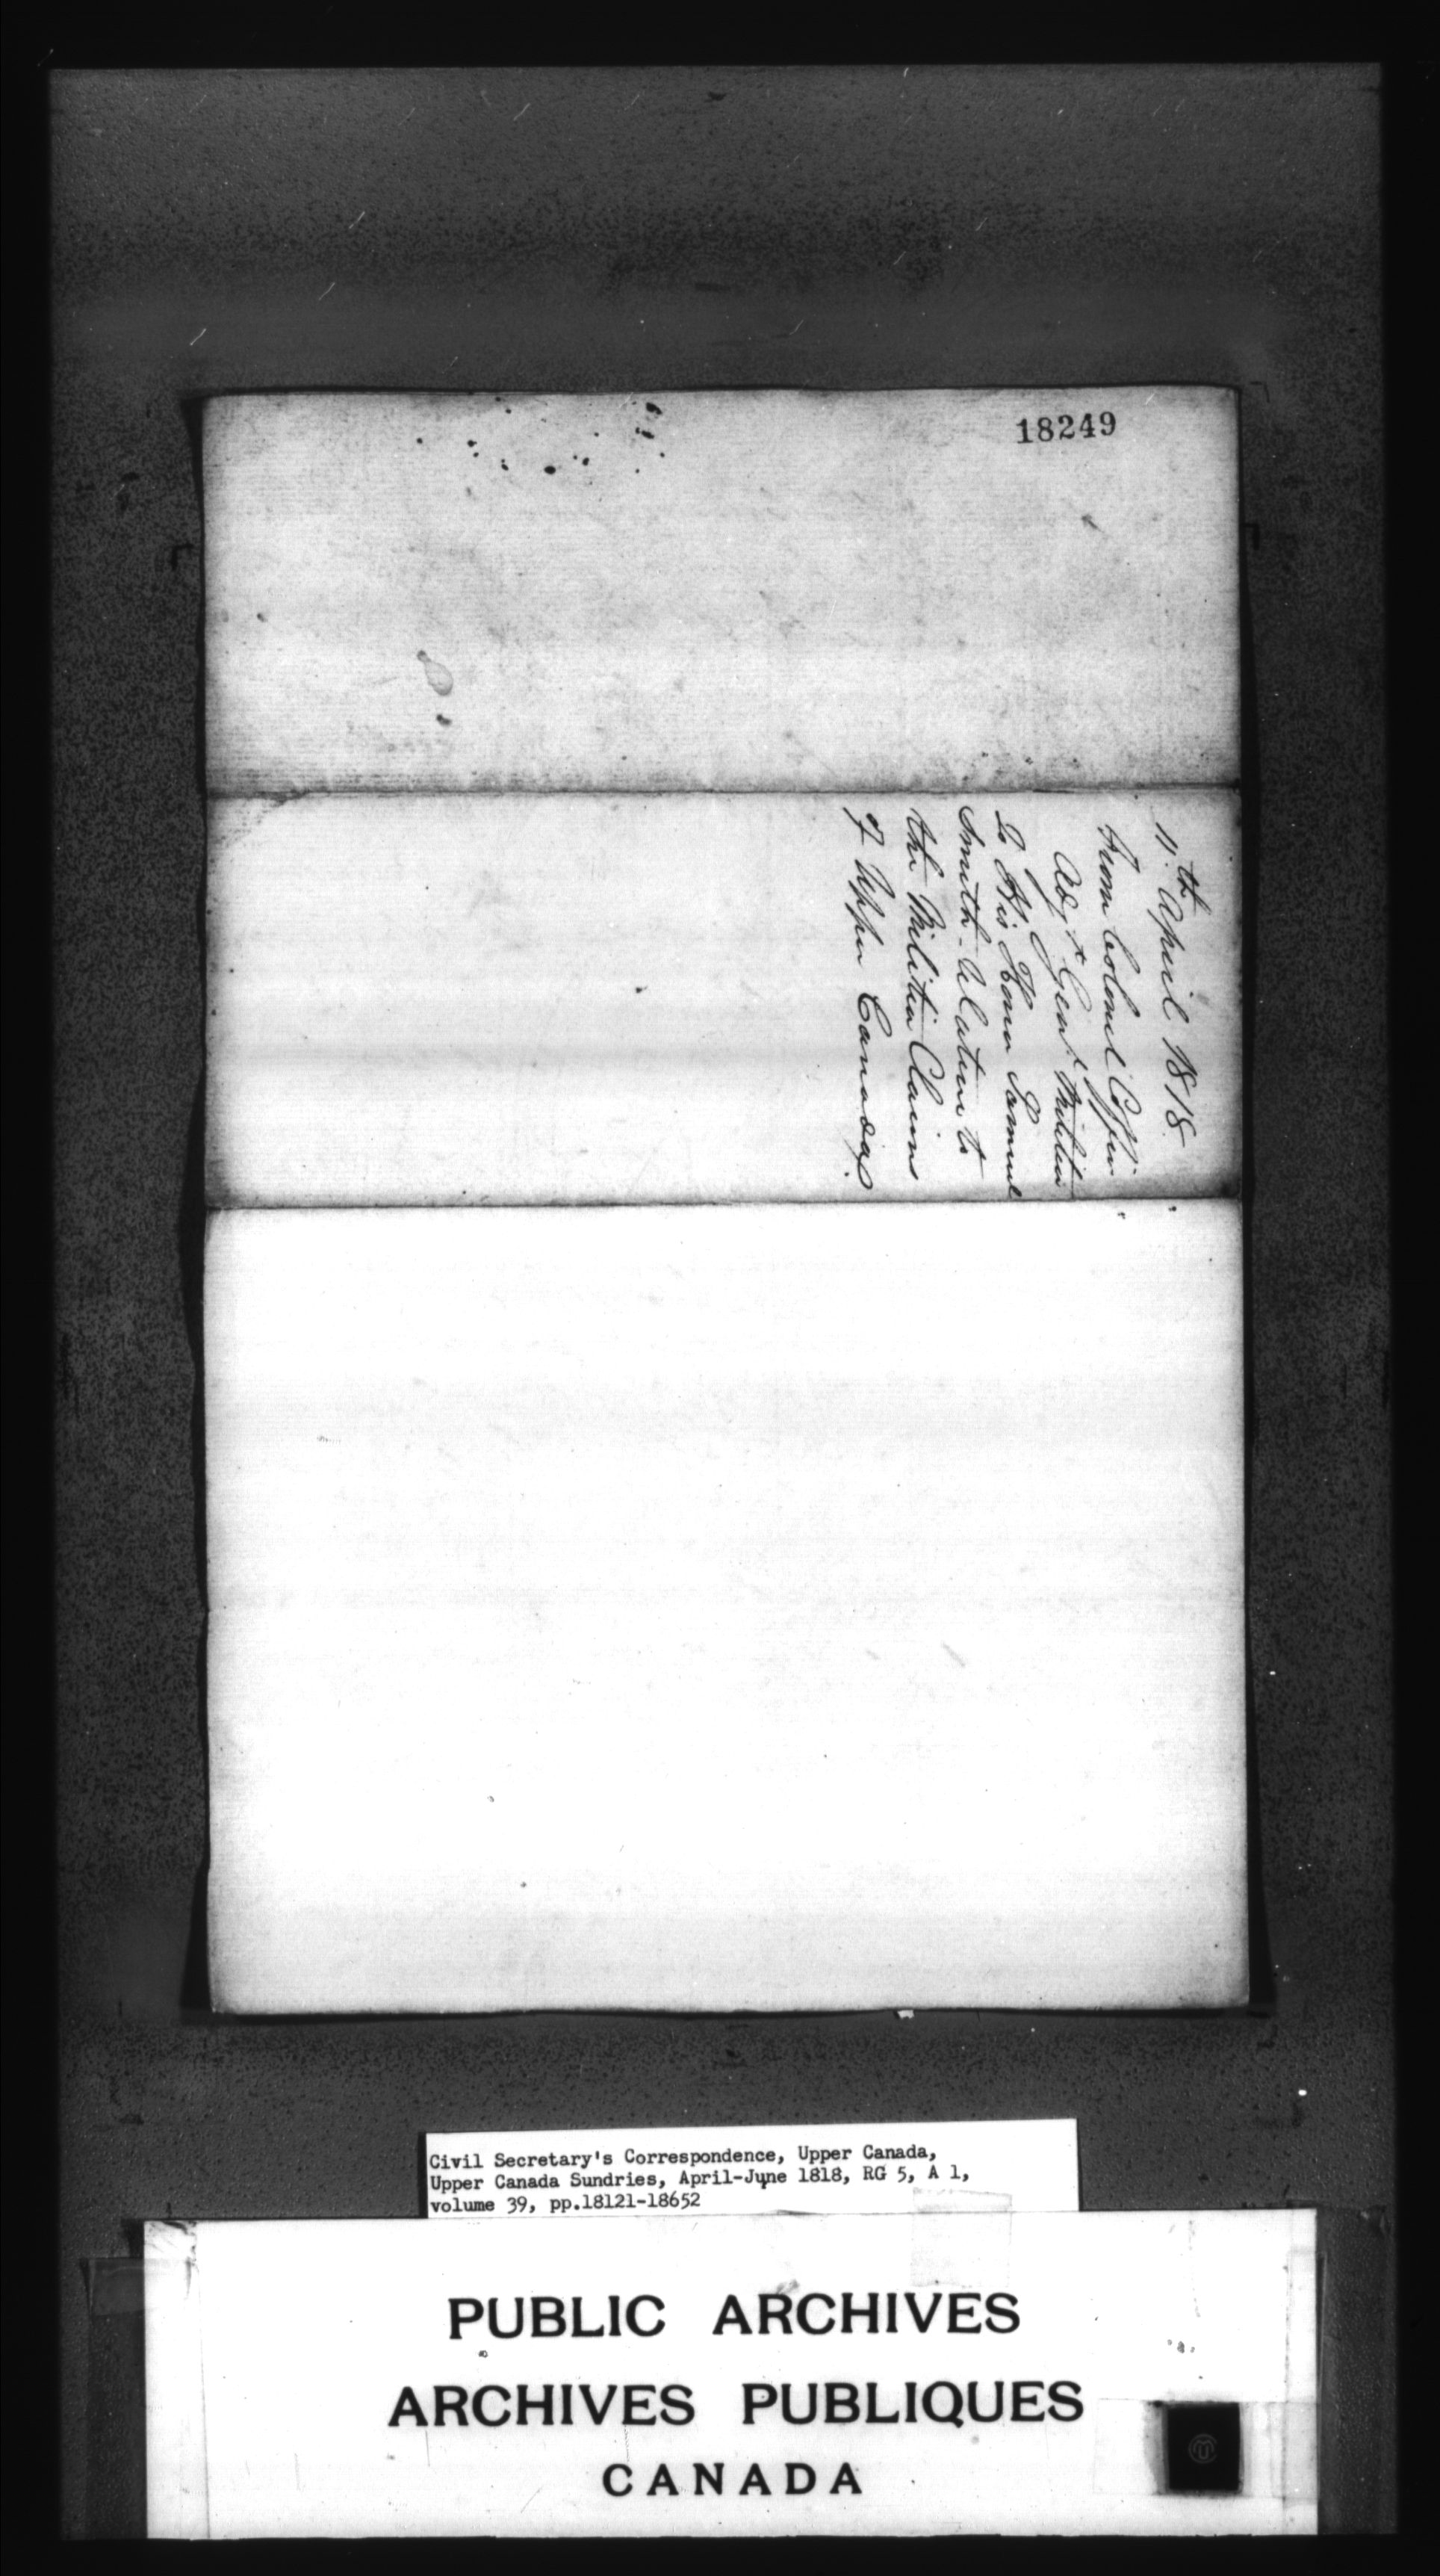 18249
11th April 1818
From Colonel Coffin
Adjt Genl Militia
To His Honor Samuel
Smith - Relative to
the Militia Claims
of Upper Canada.
Civil Secretary's Correspondence, Upper Canada,
Upper Canada Sundries, April-June 1818, RG 5, A 1,
volume 39, pp.18121-18652
PUBLIC ARCHIVES
ARCHIVES PUBLIQUES
CANADA